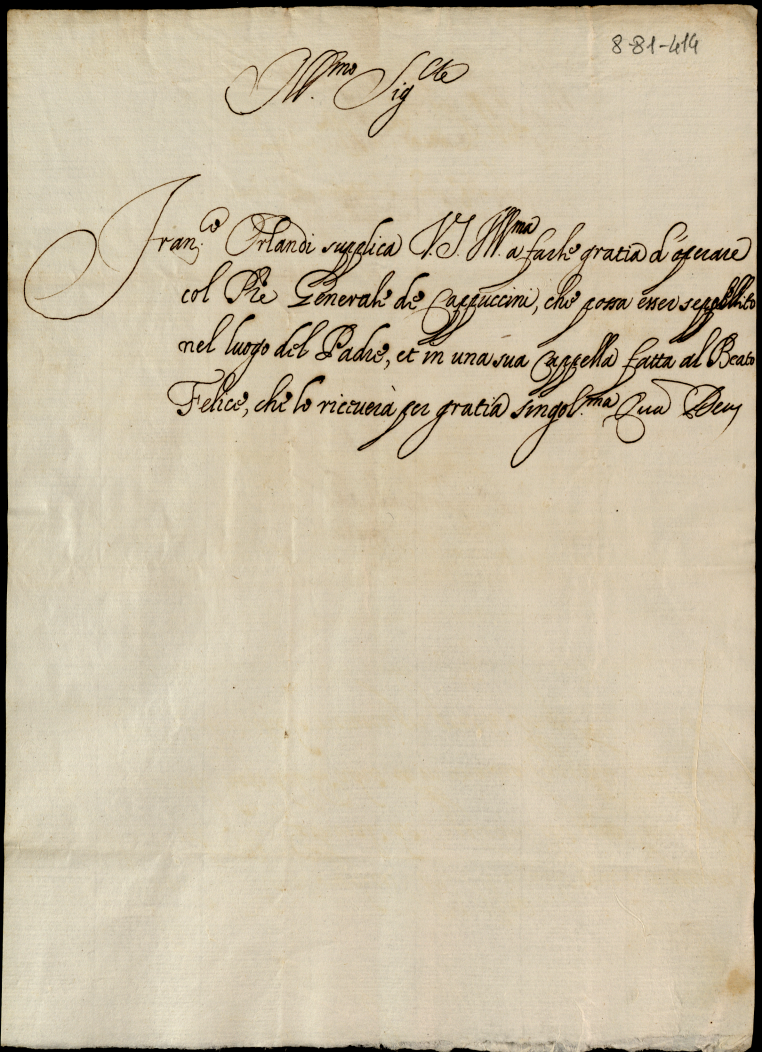 8-81-414
Ill.mo Sig.re
Fran.co Orlandi supplica V.S. Ill.ma a farle gratia d'operare
col Pre Generale de Cappuccini, che possa esser seppellito
nel luogo del Padre, et in una sua Cappella fatta al Beato
Felice, che lo riceverà per gratia singol.ma Qua Deus